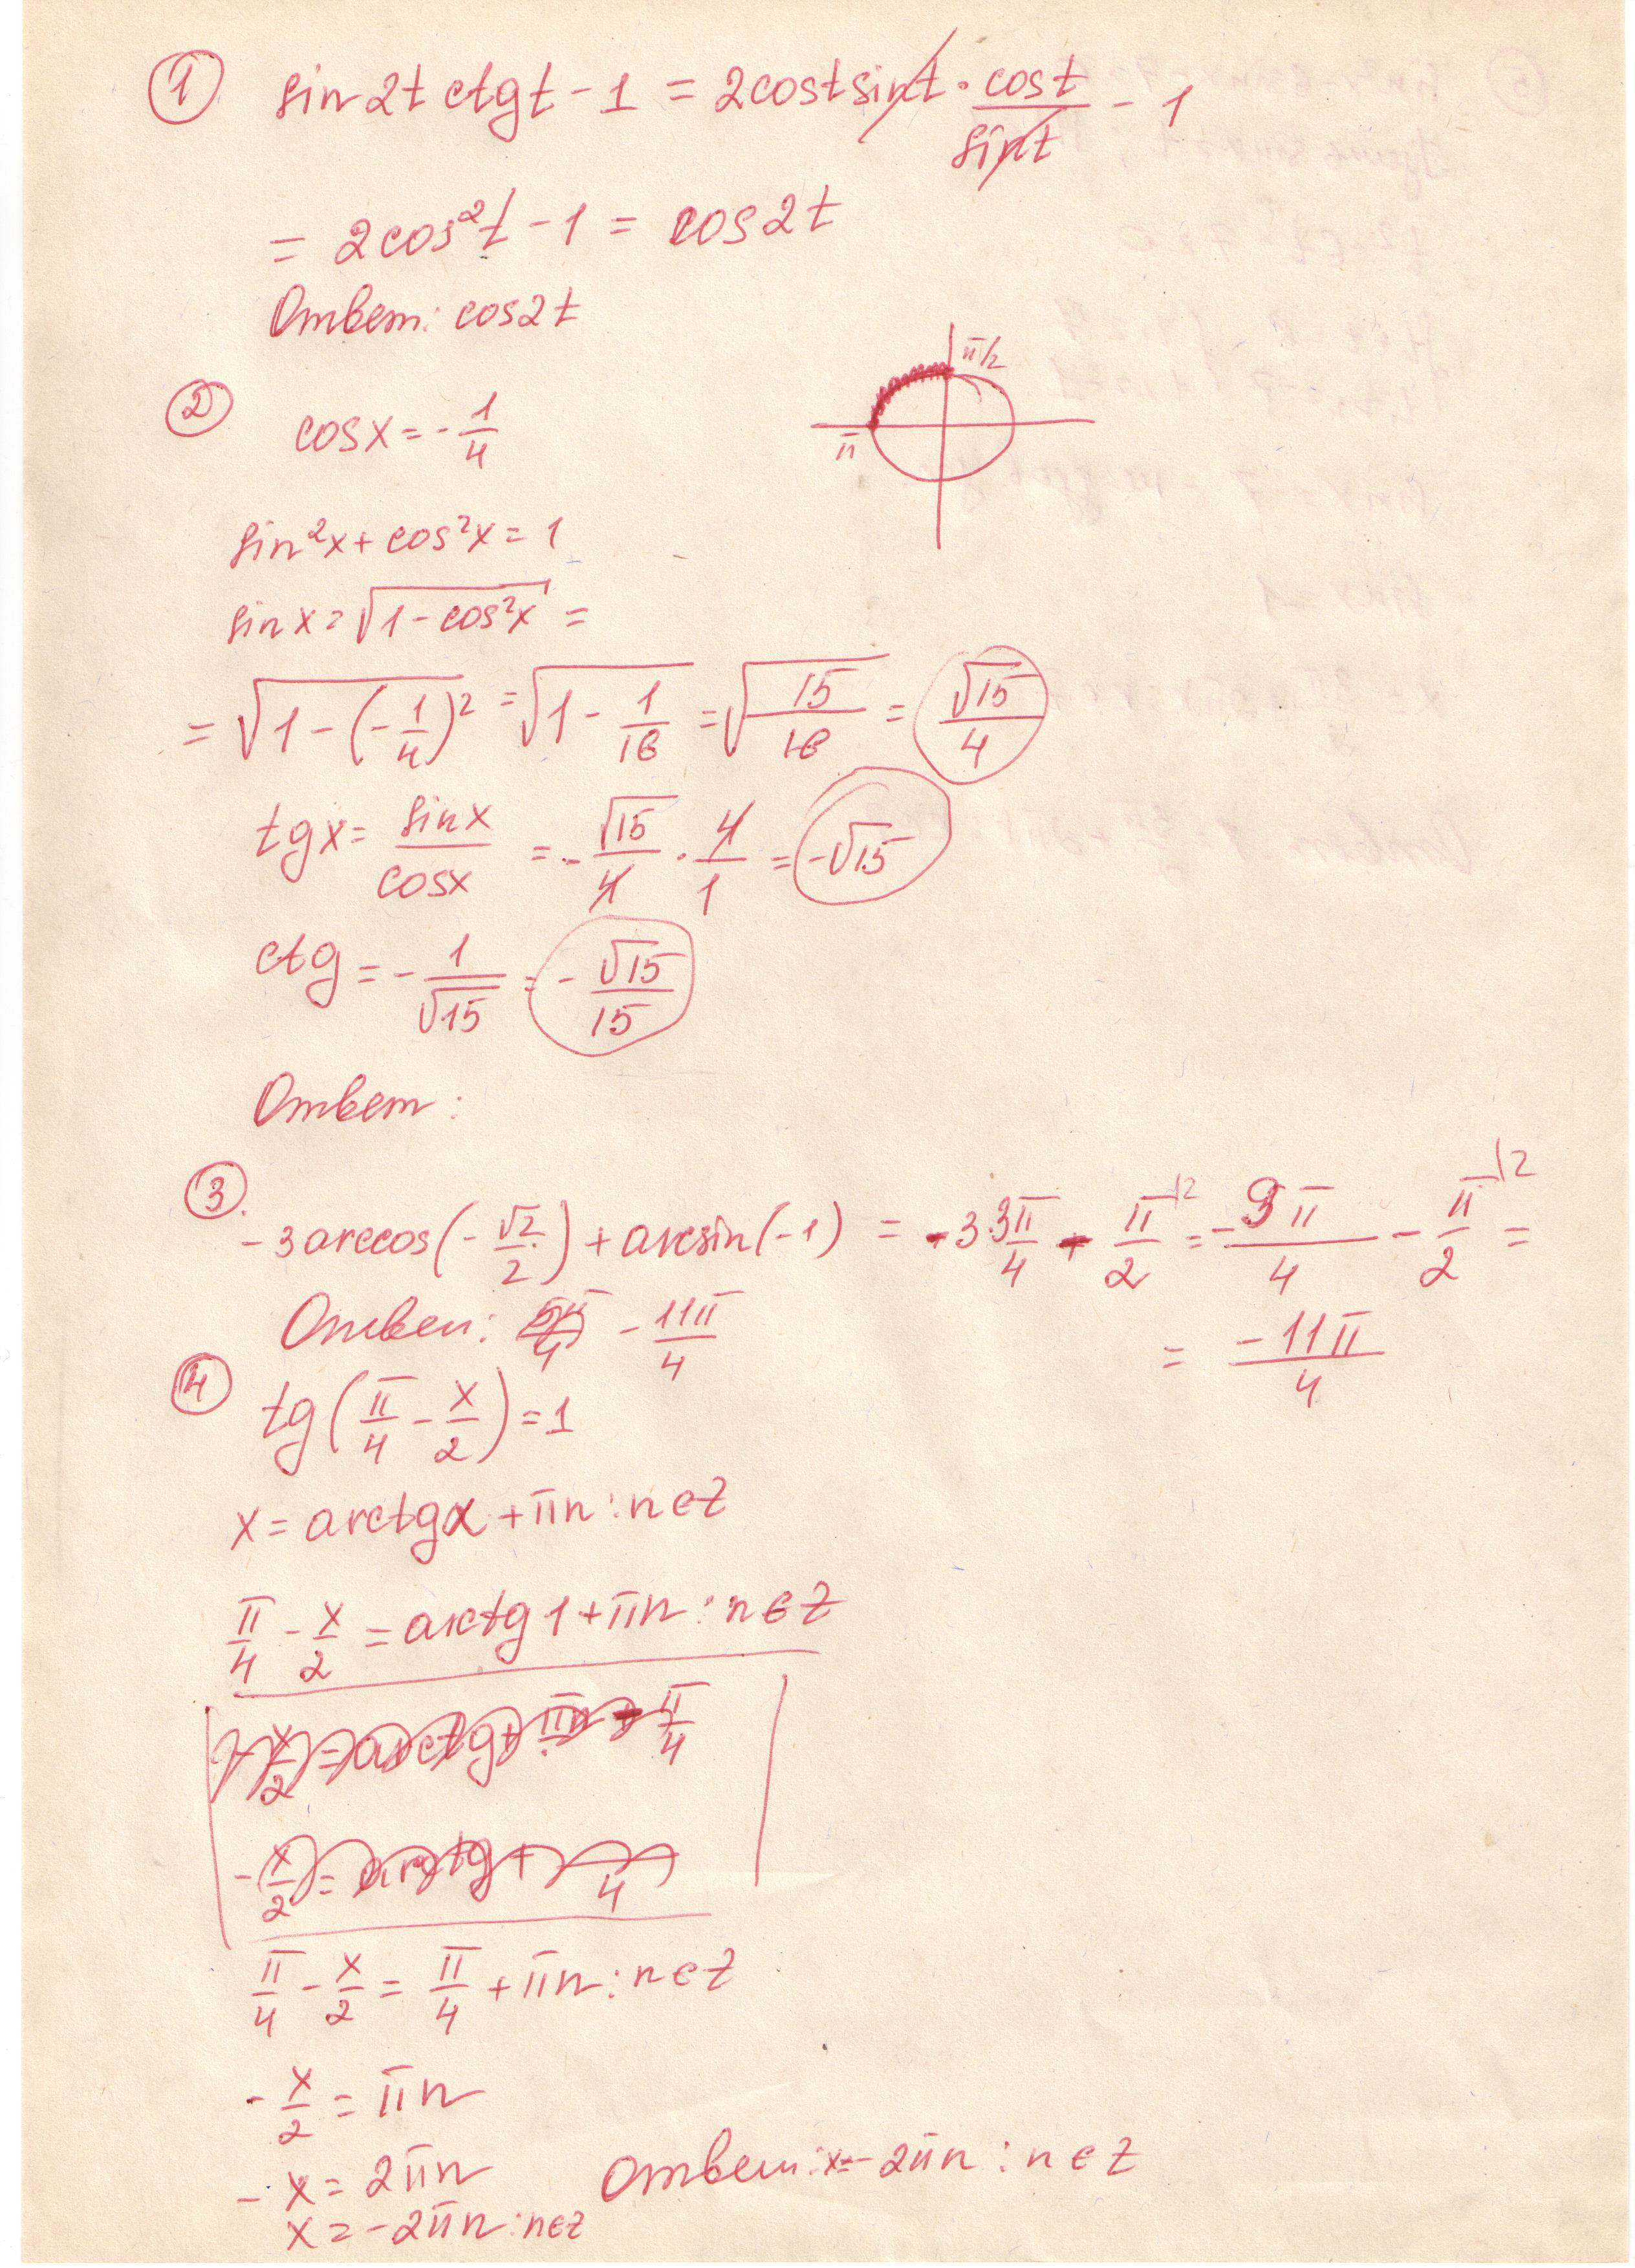 ① sin2t ctgt - 1 = 2cost sint · cost/sint - 1
= 2cos²t - 1 = cos2t
Ответ: cos2t
② cosx = -1/4
π/2
π
sin²x + cos²x = 1
sinx = √(1-cos²x) =
= √(1-(-1/4)²) = √(1 - 1/16) = √(15/16) = √15/4
tgx = sinx/cosx = -√15/4 · 4/1 = -√15
ctg = -1/√15 = -√15/15
Ответ:
③ -3arccos(-√2/2) + arcsin(-1) = -3 3π/4 - π/2 |2 = -9π/4 - π/2 |2 =
= -11π/4
Ответ: -11π/4
④ tg(π/4 - x/2) = 1
x = arctgα + πn : n∈Z
π/4 - x/2 = arctg1 + πn : n∈Z
-x/2 = arctg + πn - π/4
-x/2 = arctg +
4
π/4 - x/2 = π/4 + πn : n∈Z
-x/2 = πn
-x = 2πn
x = -2πn : n∈Z
Ответ: x = -2πn : n∈Z